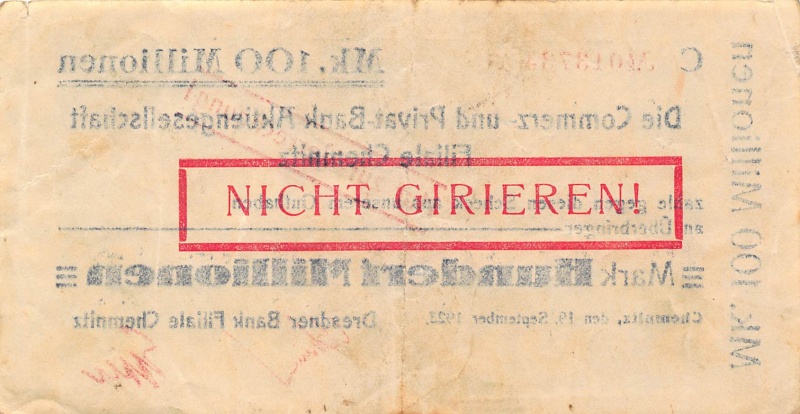 C M01373
Mk. 100 Millionen
Die Commerz- und Privat-Bank Aktiengesellschaft
Filiale Chemnitz
NICHT GIRIEREN!
zahle gegen diesen Scheck aus unserem Guthaben
an Überbringer
Mark Hundert Millionen
Chemnitz, den 19. September 1923.
Dresdner Bank Filiale Chemnitz
Mk. 100 Millionen